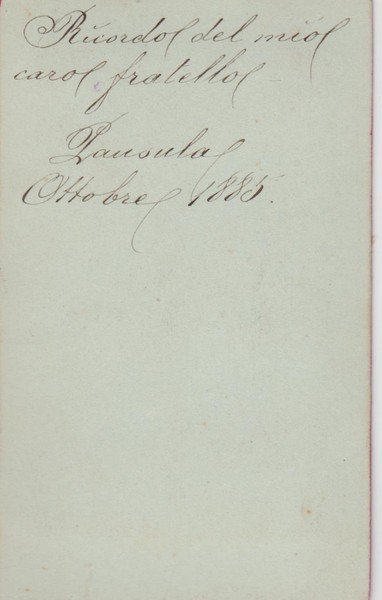 Ricordo del mio
caro fratello
Pausula
Ottobre 1885.